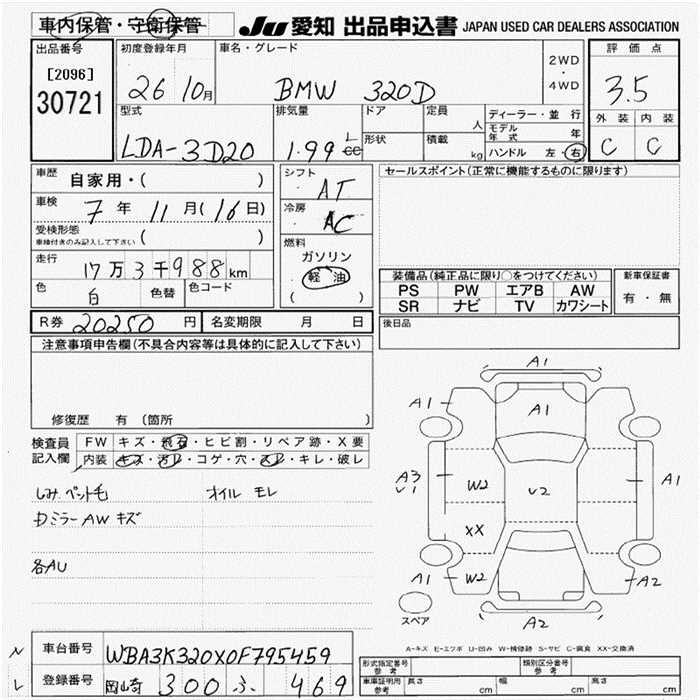 車内保管・守衛保管 JU 愛知 出品申込書 JAPAN USED CAR DEALERS ASSOCIATION
出品番号 初度登録年月 車名・グレード 2WD ・ 4WD 評価点
[2096]
30721 26 10月 BMW 320D 3.5
型式 排気量 ドア 定員 人 ディーラー・並行 外装 内装
モデル年式 年
LDA-3D20 1.99 L cc 形状 積載 kg ハンドル 左・右 C C
車歴 自家用・( ) シフト AT セールスポイント(正常に機能するものに限ります)
車検 7年 11月(16日) 冷房 AC
受検形態 車検付きのみ記入して下さい ( ) 燃料
ガソリン
走行 17万3千988km 軽油 装備品(純正品に限り○をつけてください) 新車保証書
色 白 色替 色コード ( ) PS PW エアB AW 有・無
SR ナビ TV カワシート
R券 20250円 名変期限 月 日 後日品
注意事項申告欄(不具合内容等は具体的に記入して下さい)
修復歴 有 (箇所 )
検査員記入欄 FW キズ・飛石・ヒビ割・リペア跡・X要
内装 キズ・汚レ・コゲ・穴・スレ・キレ・破レ
しみ ペット毛 オイル モレ
DミラーAW キズ
各AU
A1
A1 A1 A1
A3 U1 W2 U2 A1
XX
A1 W2 A2
スペア A2
A-キズ E-エクボ U-凹み W-補修跡 S-サビ C-腐食 XX-交換済
N 車台番号 WBA3K320X0F795459
L 登録番号 300 ふ 469
形式指定番号 参考 類別区分番号 参考
車庫証明用 参考 長さ cm 幅 cm 高さ cm